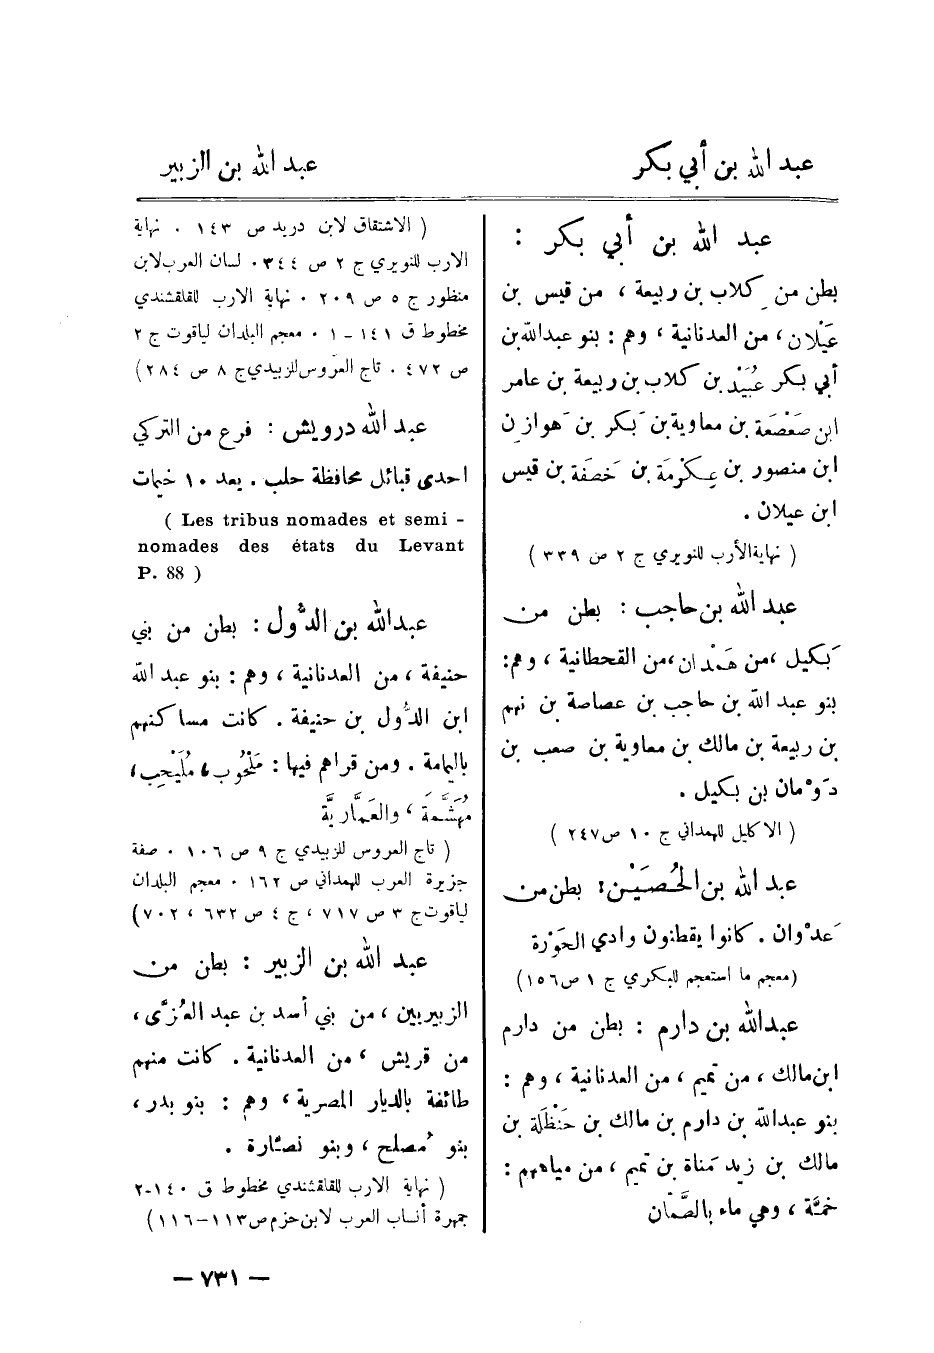 عبد الله بن أبي بكر
عبد الله بن الزبير
عبد الله بن أبي بكر :
بطن من كِلاب بن ربيعة ، من قيس بن
عَيْلان ، من العدنانية ، وهم : بنو عبدالله بن
أبي بكر عُبَيْد بن كلاب بن ربيعة بن عامر
ابن صَعْصَعة بن معاوية بن بَكر بن هَوازِن
ابن منصور بن عِكْرِمَة بن خَصَفَة بن قيس
ابن عيلان .
( نهاية الأرب للنويري ج ٢ ص ٣٣٩ )
عبد الله بن حاجب : بطن من
بَكيل ، من هَمْدان ، من القحطانية ، وهم :
بنو عبد الله بن حاجب بن عصاصة بن نهم
بن ربيعة بن مالك بن معاوية بن صعب بن
دَوْمان بن بكيل .
( الاكليل للهمداني ج ١٠ ص ٢٤٧ )
عبد الله بن الحُصَيْن : بطن من
عَدْوان . كانوا يقطنون وادي الحَوْرة
(معجم ما استعجم للبكري ج ١ ص ١٥٦)
عبدالله بن دارم : بطن من دارم
ابن مالك ، من تميم ، من العدنانية ، وهم :
بنو عبدالله بن دارم بن مالك بن حَنْظَلة بن
مالك بن زيد مَناة بن تميم ، من مياههم :
خمَّة ، وهي ماء بالصَّمَّان
( الاشتقاق لابن دريد ص ١٤٣ . نهاية
الارب للنويري ج ٢ ص ٣٤٤ . لسان العرب لابن
منظور ج ٥ ص ٢٠٩ . نهاية الارب للقلقشندي
مخطوط ق ١٤١ – ١ . معجم البلدان لياقوت ج ٢
ص ٤٧٢ . تاج العروس للزبيدي ج ٨ ص ٢٨٤)
عبد الله درويش : فرع من التركي
احدى قبائل محافظة حلب . يعد ١٠ خيمات
( Les tribus nomades et semi -
nomades des états du Levant
P. 88 )
عبدالله بن الدُّول : بطن من بني
حنيفة ، من العدنانية ، وهم : بنو عبد الله
ابن الدُّول بن حنيفة . كانت مساكنهم
باليمامة . ومن قراهم فيها : مَلْحُوب ، مُلَيْحِب ،
مُهَشَّمَة ، والعَمَّارِيَّة
( تاج العروس للزبيدي ج ٩ ص ١٠٦ . صفة
جزيرة العرب للهمداني ص ١٦٢ . معجم البلدان
لياقوت ج ٣ ص ٧١٧ ، ج ٤ ص ٦٣٢ ، ٧٠٢)
عبد الله بن الزبير : بطن من
الزبيريين ، من بني أسد بن عبد العُزَّى ،
من قريش ، من العدنانية . كانت منهم
طائفة بالديار المصرية ، وهم : بنو بدر ،
بنو مُصلح ، وبنو نصَّارة .
( نهاية الارب للقلقشندي مخطوط ق ١٤٠-٢
جمهرة أنساب العرب لابن حزم ص ١١٣–١١٦)
– ٧٣١ –